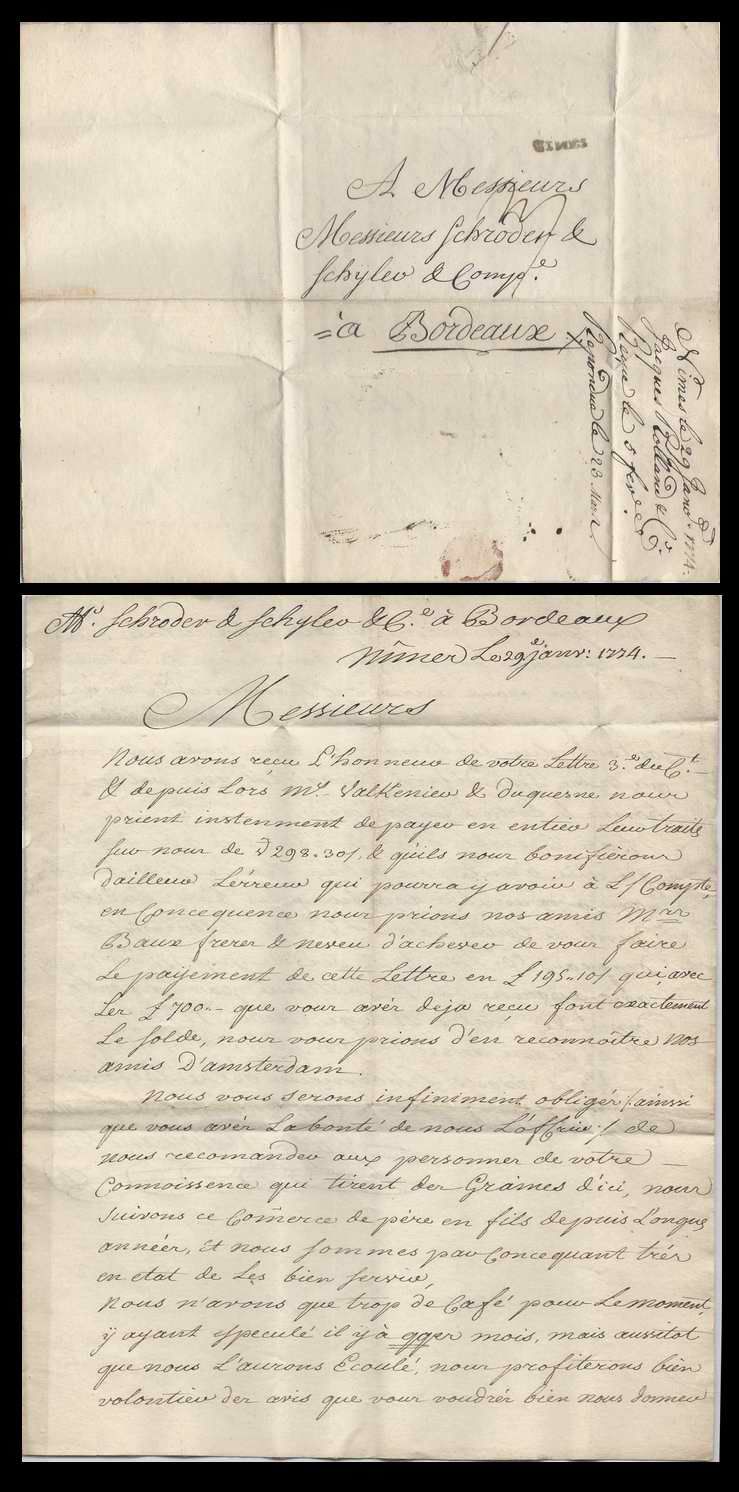 NISMES
A Messieurs
Messieurs Schröder &
Schÿler & Comp.e
=à Bordeaux
Nimes le 29 Janv. 1774.
Jacques Rolland & C.
Reçue le 5 fev.
Repondue le 23 Mars
M.s Schroder & Schyler & C.e à Bordeaux
Nîmes Le 29.e janv: 1774.—
Messieurs
Nous avons reçu L'honneur de votre Lettre 3.e du C.t
& depuis Lors M.s Valkenier & duquesne nous
prient instenment de payer en entier Leur traite
sur nous de 298.30/. & qu'ils nous bonifièrons
d'ailleur L'érreur qui pourra y avoir à L/Compte,
en Concequence nous prions nos amis Mrs
Baux freres & neveu d'achever de vous faire
Le payement de cette Lettre en £ 195.10/ qui avec
Les £ 700.- que vous avés deja reçu font exactement
Le solde, nous vous prions d'en reconnoître nos
amis D'amsterdam.
Nous vous serons infiniment obligés /:ainsi
que vous avés La bonté de nous L'offrir:/ de
nous recomander aux personnes de votre —
Connoissence qui tirent des Graines d'ici, nous
suivons ce Comerce de pére en fils depuis Longues
années, Et nous sommes par Concequant trés
en etat de Les bien servir,
Nous n'avons que trop de Café pour Le moment,
ÿ ayant speculé il ÿ à qques mois, mais aussitot
que nous L'aurons Ecoulé, nous profiterons bien
volontier des avis que vous voudrés bien nous donner